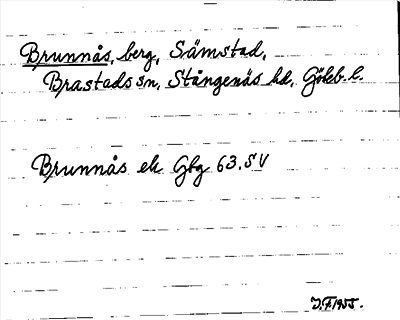 Brunnås, berg, Sämstad,
Brastads sn, Stångenäs hd, Göteb. l.
Brunnås ek Gbg 63. SV
J.F. 1955.